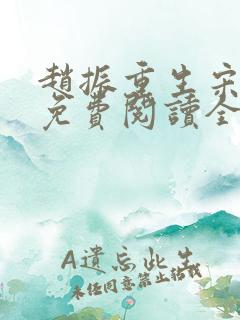 趙振重生宋
免費閱讀全
A遺忘此生
未經同意禁止轉載